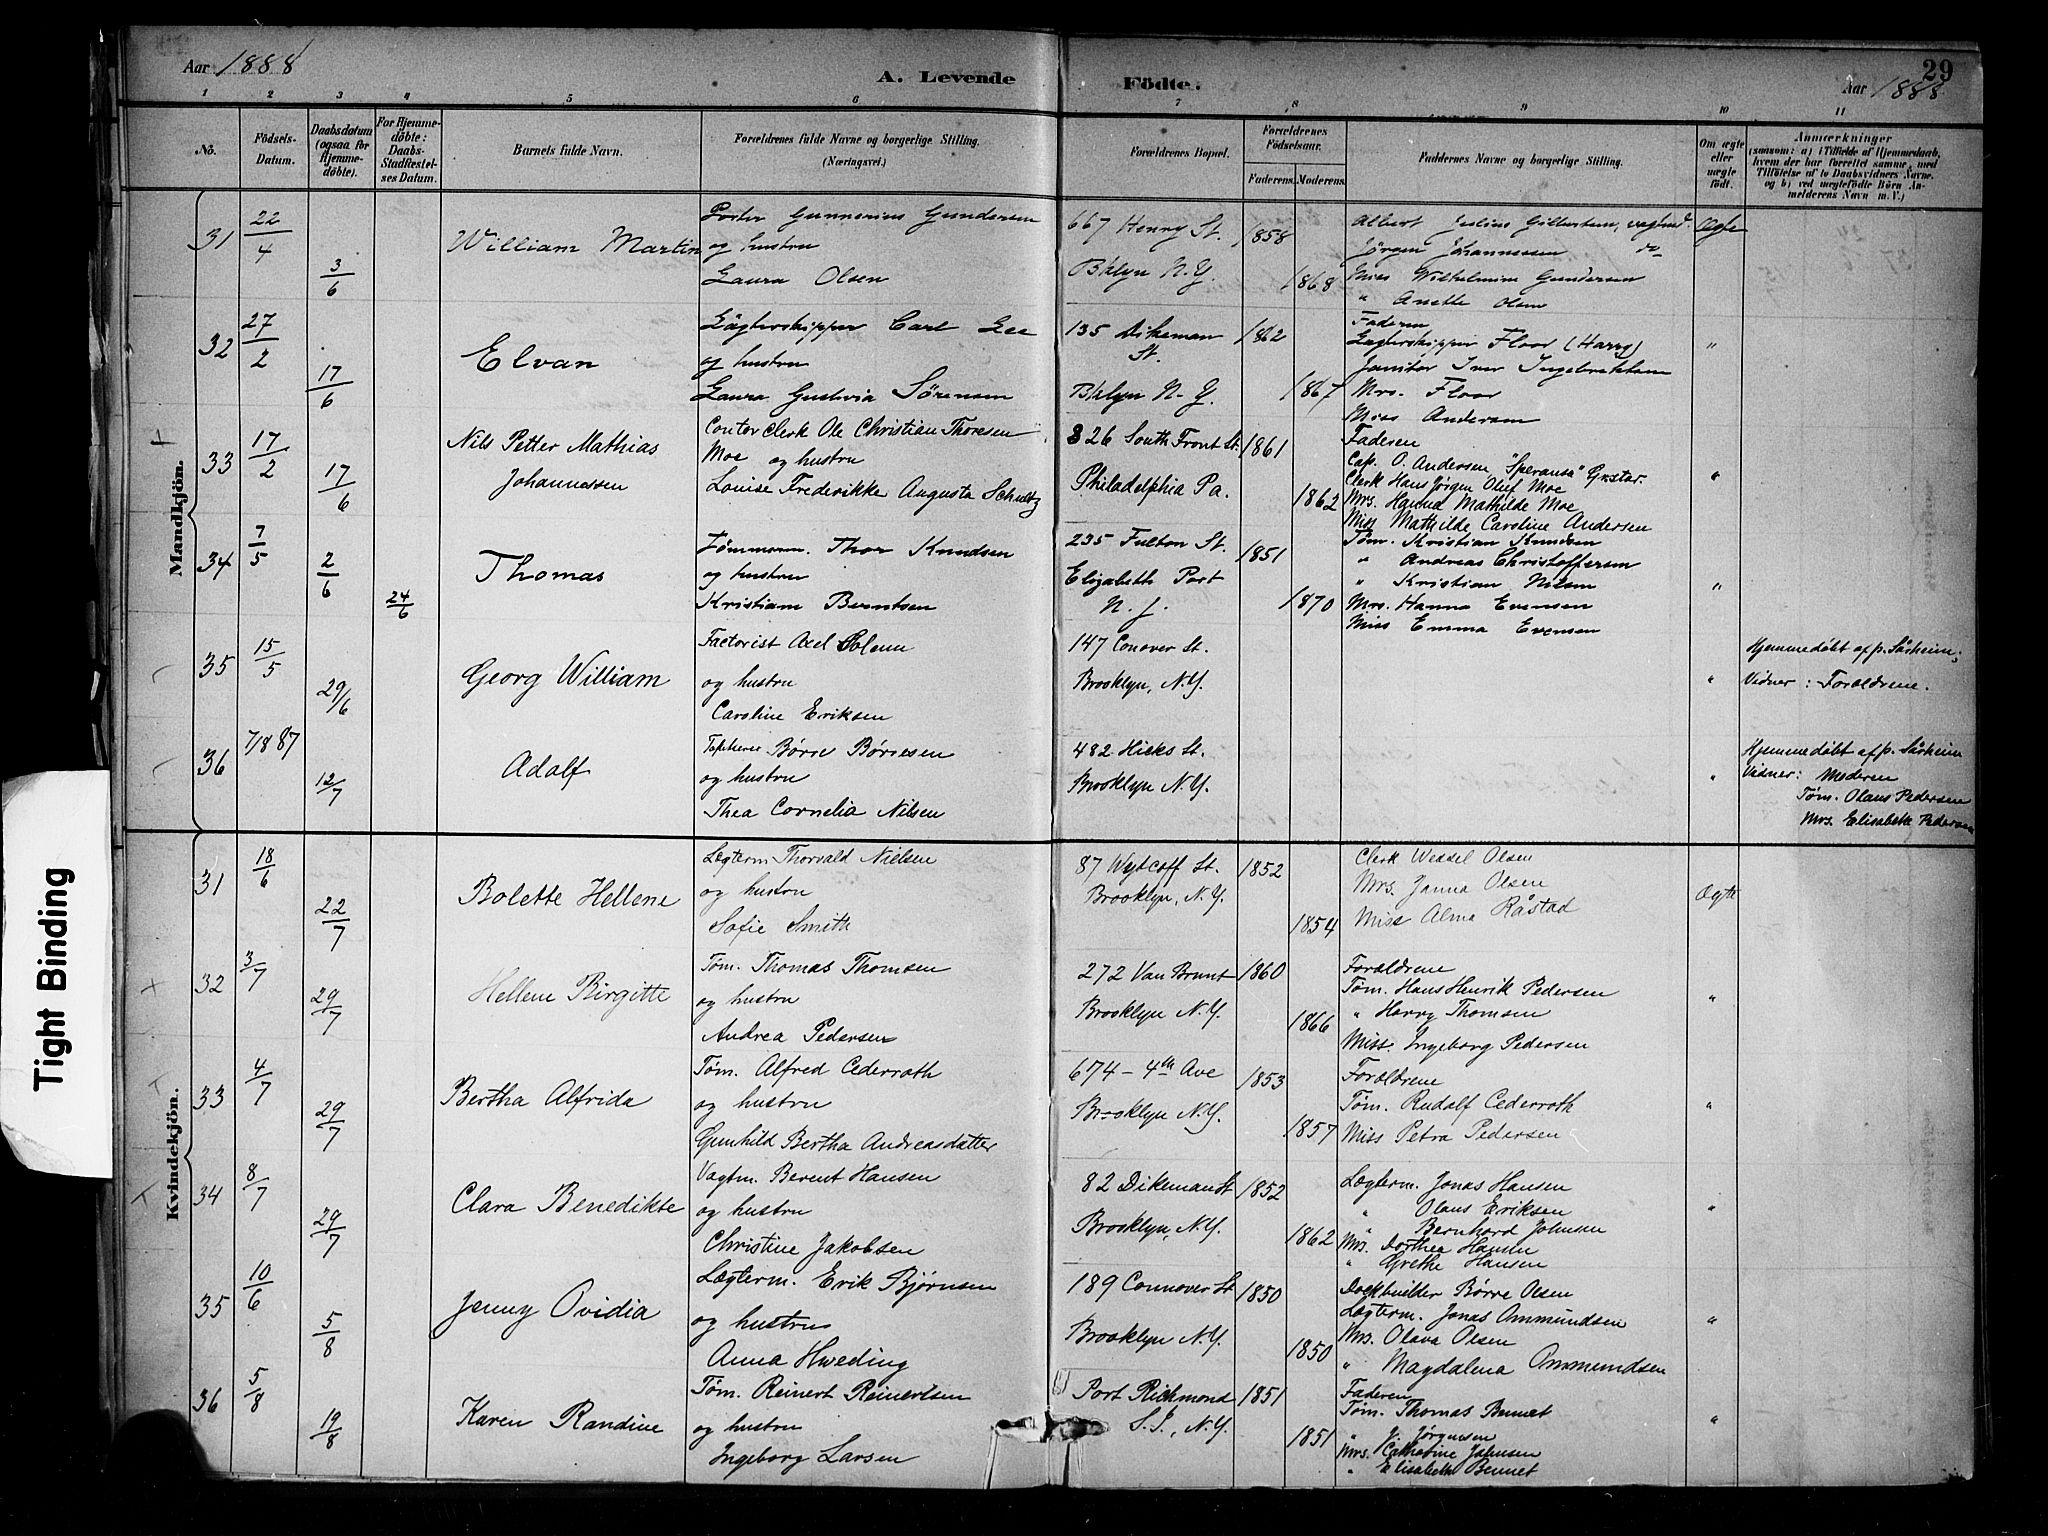 Aar 1888
A. Levende
Födte.
29
Aar 1888
1 2 3 4 5 6 7 8 9 10 11
No.
Födsels-Datum.
Daabsdatum (ogsaa for Hjemme-döbte).
For Hjemme-döbte: Daabs-Stadfæstel-ses Datum.
Barnets fulde Navn.
Forældrenes fulde Navne og borgerlige Stilling. (Næringsvei.)
Forældrenes Bopæl.
Forældrenes Födselsaar.
Faderens. Moderens.
Faddernes Navne og borgerlige Stilling.
Om ægte eller uægte födt.
Anmærkninger
(saasom: a) i Tilfælde af Hjemmedaab, hvem der har forrettet samme, med Tilföielse af to Daabsvidners Navne, og b) ved uægtefödte Börn An-melderens Navn m. V.)
Mandkjön.
31 22/4 3/6 William Martin
Gunnerius Gundersen
og hustru
Laura Olsen
667 Henry St.
B'klyn N.Y.
1858 1868
Albert Julius
Jørgen Johannessen do
Miss Wilhelmine Gundersen
" Anette Olsen
Ægte
32 27/2 17/6 Elvan
Lægterskipper Carl Lee
og hustru
Laura Gustivia Sörensen
135 Dikeman St.
B'klyn N.Y.
1862 1867
Faderen
Lægterskipper Floor (Harry)
Janitor Iver Ingebrektsen
Mrs. Floor
Miss Andersen
"
33 17/2 17/6 Nils Petter Mathias
Johannessen
Contor Clerk Ole Christian Thoresen
Moe og hustru
Louise Frederikke Augusta Schultz
826 South Front St.
Philadelphia Pa.
1861 1862
Faderen
Cap. O. Andersen "Speransa"
Clerk Hans Jörgen Oluf Moe
Mrs. Hanna Mathilde Moe
Miss Mathilde Caroline Andersen
"
34 7/5 2/6 24/6 Thomas
Tømmerm. Thor Knudsen
og hustru
Kristiane Berntsen
235 Fulton St.
Elizabeth Port
N.J.
1851 1870
Tøm. Kristian Knudsen
" Andreas Christoffersen
" Kristian Nilsen
Mrs. Hanna Evensen
Miss Emma Evensen
"
35 15/5 29/6 Georg William
Factorist Axel Solem
og hustru
Caroline Eriksen
147 Conover St.
Brooklyn, N.Y.
"
Hjemmedøbt af p. Sårheim;
Vidner: Forældrene.
36 7/8 87 12/7 Adolf
Børre Børresen
og hustru
Thea Cornelia Nilsen
482 Hicks St.
Brooklyn N.Y.
"
Hjemmedøbt af p. Sårheim
Vidner: Moderen
Tøm. Olaus Pedersen
Mrs. Elisabeth Pedersen
Kvindekjön.
31 18/6 22/7 Bolette Hellene
Lægterm Thorvald Nielsen
og hustru
Sofie Smith
87 Wyckoff St.
Brooklyn, N.Y.
1852 1854
Clerk Wessel Olsen
Mrs. Janna Olsen
Miss Alma Råstad
Ægte
32 3/7 29/7 Hellene Birgitte
Tøm. Thomas Thomsen
og hustru
Andrea Pedersen
272 Van Brunt
Brooklyn N.Y.
1860 1866
Forældrene
Tøm. Hans Henrik Pedersen
" Harry Thomsen
Miss. Ingeborg Pedersen
"
33 4/7 29/7 Bertha Alfrida
Tøm. Alfred Cederroth
og hustru
Gunhild Bertha Andreasdatter
674 - 4th Ave
Brooklyn N.Y.
1853 1857
Forældrene
Tøm. Rudolf Cederroth
Miss Petra Pedersen
"
34 8/7 29/7 Clara Benedikte
Vagtm. Berent Hansen
og hustru
Christine Jakobsen
82 Dikeman St
Brooklyn, N.Y.
1852 1862
Lægterm. Jonas Hansen
" Olaus Eriksen
" Bernhard Johnsen
Mrs. Dorthea Hansen
" Grethe Hansen
"
35 10/6 5/8 Jenny Ovidia
Lægterm. Erik Bjørnsen
og hustru
Anna Hweding
189 Connover St
Brooklyn N.Y.
1850 1850
Dockbuilder Børre Olsen
Lægterm. Jonas Ommundsen
Mrs. Olava Olsen
" Magdalena Ommundsen
"
36 5/8 19/8 Karen Randine
Tøm. Reinert Reinertsen
og hustru
Ingeborg Larsen
Port Richmond
S.I., N.Y.
1851 1851
Faderen
Tøm. Thomas Bennet
" J. Jørgensen
Mrs. Cathatine Johnsen
" Elisabeth Bennet
"
Tight Binding